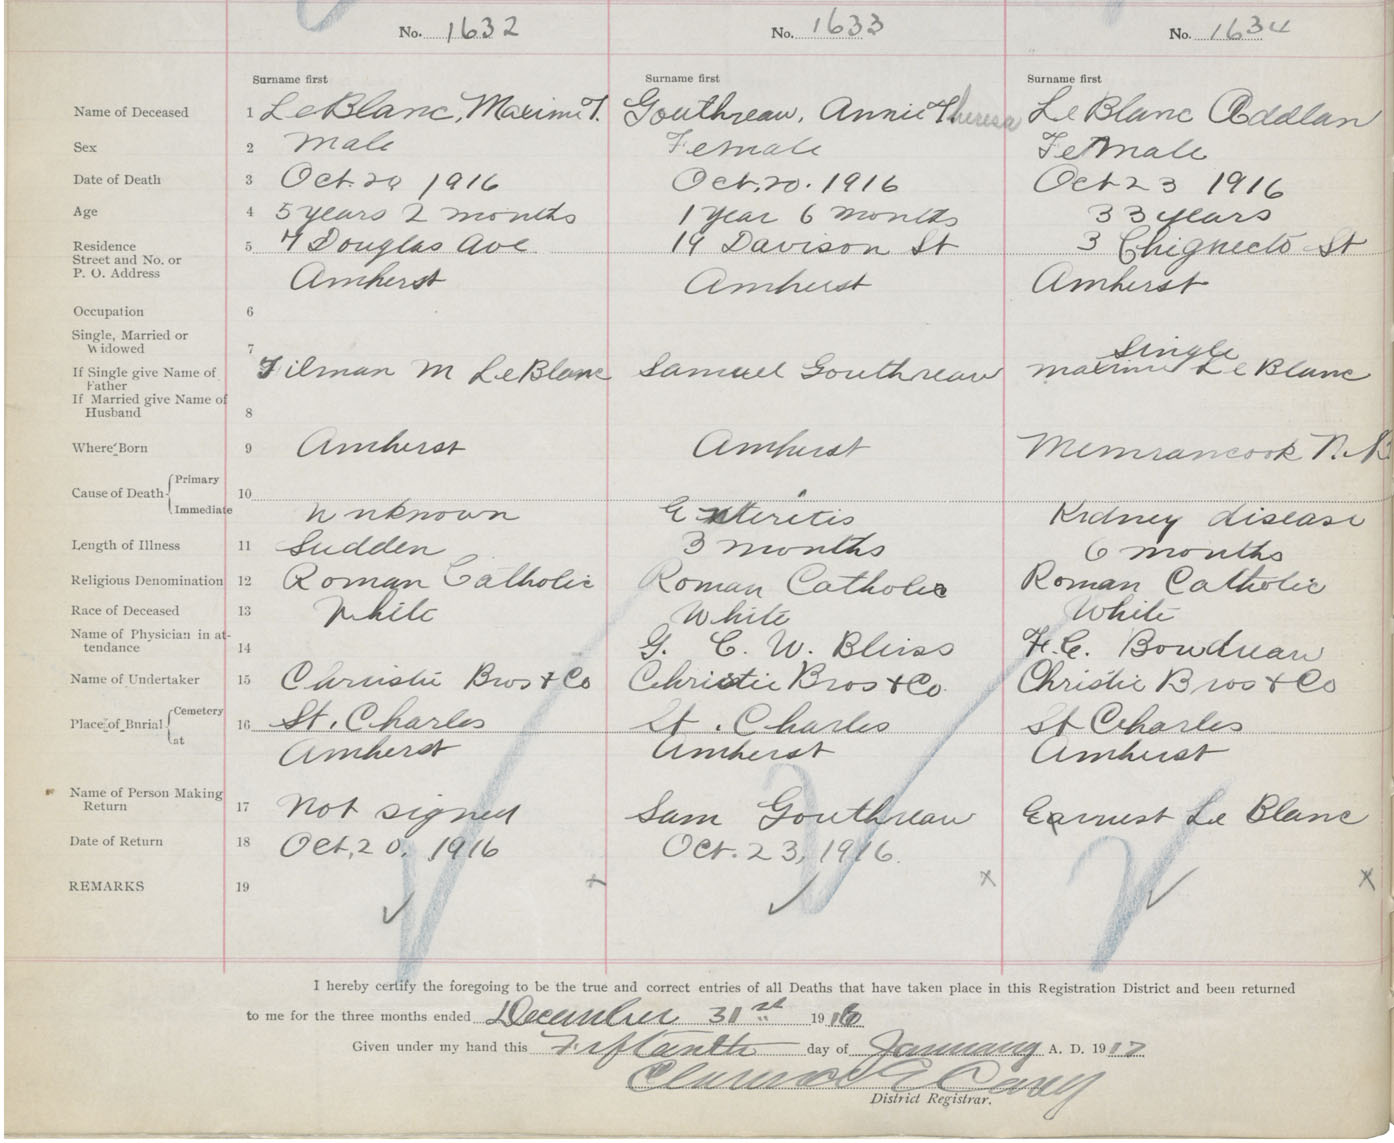 No. 1632 No. 1633 No. 1634
Surname first Surname first Surname first
Name of Deceased 1 LeBlanc, Maxime T. Gouthreau, Annie Theresa LeBlanc Addlan
Sex 2 Male Female Female
Date of Death 3 Oct. 20 1916 Oct. 20. 1916 Oct 23 1916
Age 4 5 years 2 months 1 year 6 months 33 years
Residence 5 7 Douglas Ave 19 Davison St 3 Chignecto St
Street and No. or
P. O. Address Amherst Amherst Amherst
Occupation 6
Single, Married or
Widowed 7 Single
If Single give Name of Tilman M LeBlanc Samuel Gouthreau Maxime LeBlanc
Father
If Married give Name of
Husband 8
Where Born 9 Amherst Amherst Memrancook N.B
Cause of Death Primary 10
Immediate unknown Enteritis Kidney disease
Length of Illness 11 Sudden 3 months 6 months
Religious Denomination 12 Roman Catholic Roman Catholic Roman Catholic
Race of Deceased 13 White White White
Name of Physician in at-
tendance 14 G. C. W. Bliss F. C. Boudreau
Name of Undertaker 15 Christie Bros & Co Christie Bros & Co. Christie Bros & Co
Place of Burial Cemetery 16 St. Charles St. Charles St Charles
at Amherst Amherst Amherst
Name of Person Making
Return 17 Not signed Sam Gouthreau Earnest Le Blanc
Date of Return 18 Oct. 20. 1916 Oct. 23, 1916.
REMARKS 19 x x
I hereby certify the foregoing to be the true and correct entries of all Deaths that have taken place in this Registration District and been returned
to me for the three months ended December 31st 1916
Given under my hand this Fifteenth day of January A. D. 1917
Clarence E Casey
District Registrar.